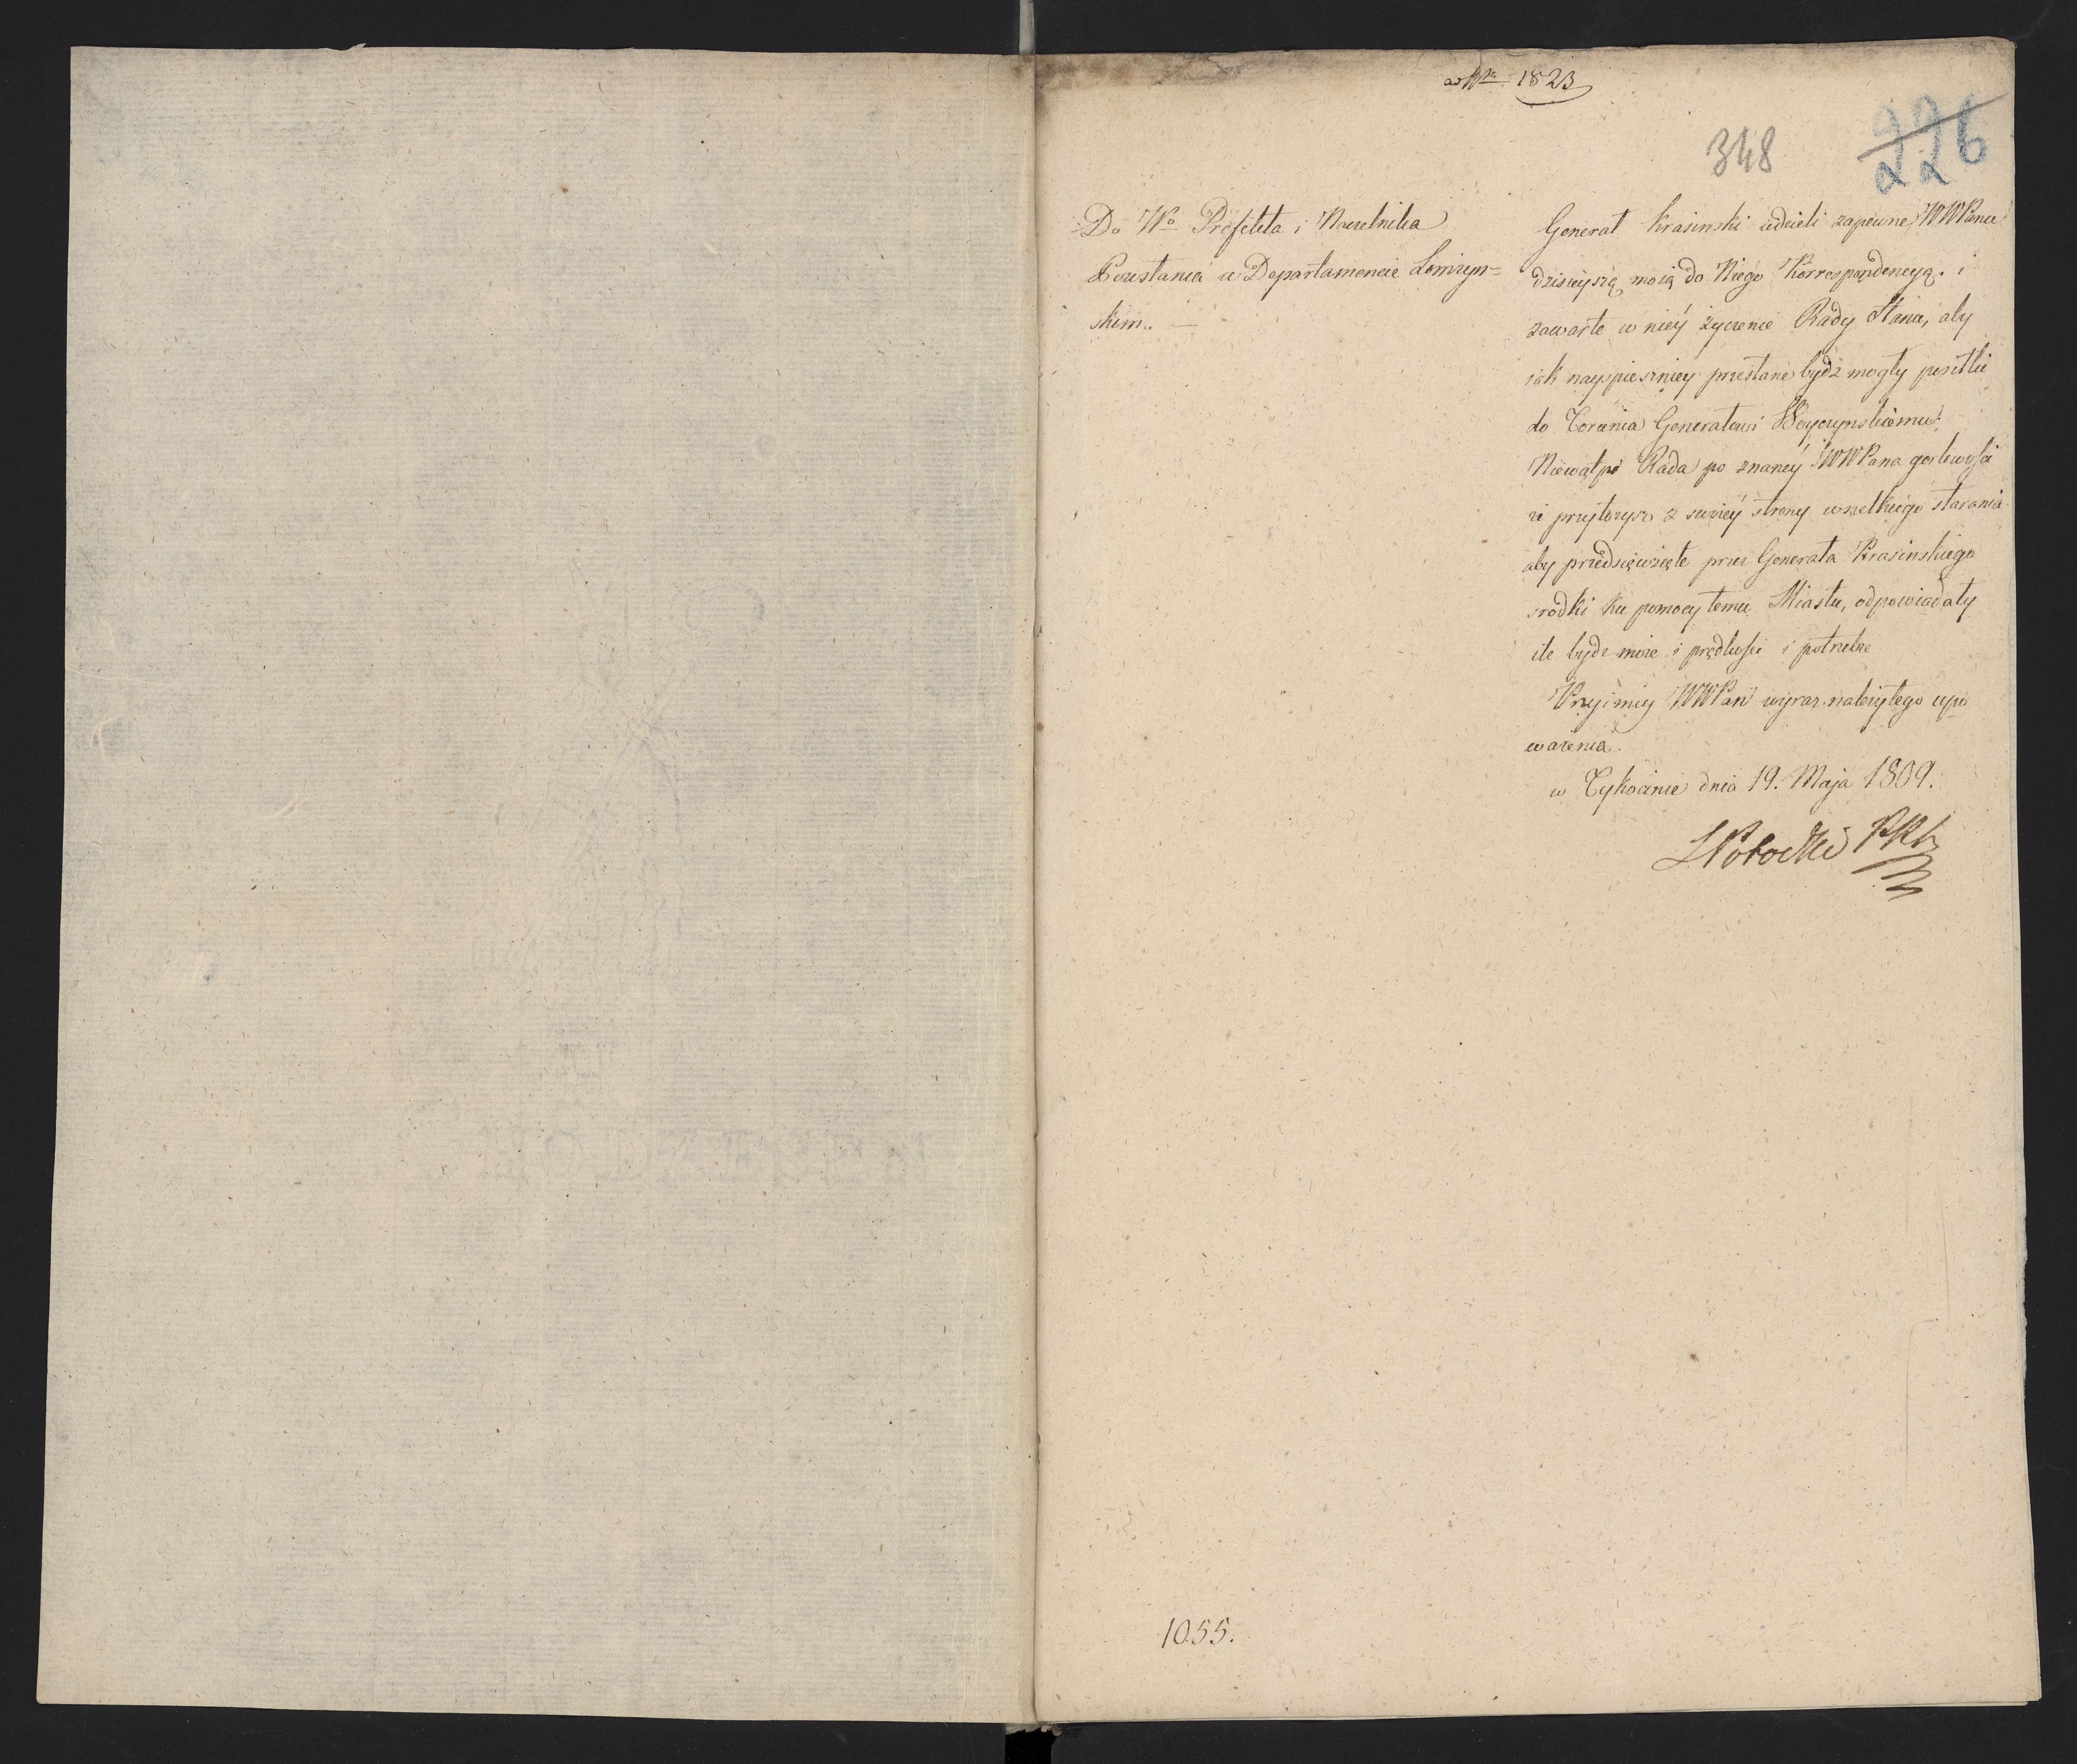 ad Nr 1823
348
226
Do Wo Prefekta i Naczelnika
Powstania w Departamencie Łomżyń=
skim. —
Generał Krasinski udzieli zapewne WWPanu
dzisieyszą moią do Niego Korrespondencyą. i
zawarte w niéy życzenie Rady Stanu, aby
iak nayspieszniey przesłane bydz mogły posiłki
do Torunia Generałowi Woyczynskiemu.
Niewątpi Rada po znanéy WWPana gorliwości
iż przyłożysz z swoiéy strony wszelkiego starania
aby przedsięwzięte przez Generała Krasinskiego
srodki ku pomocy temu Miastu, odpowiadały
ile bydz może i prędkości i potrzebie
Przyimiy WWPan wyraz należytego upo
ważenia.
w Tykocinie dnia 19. Maja 1809.
SPotocki PRS
1055.